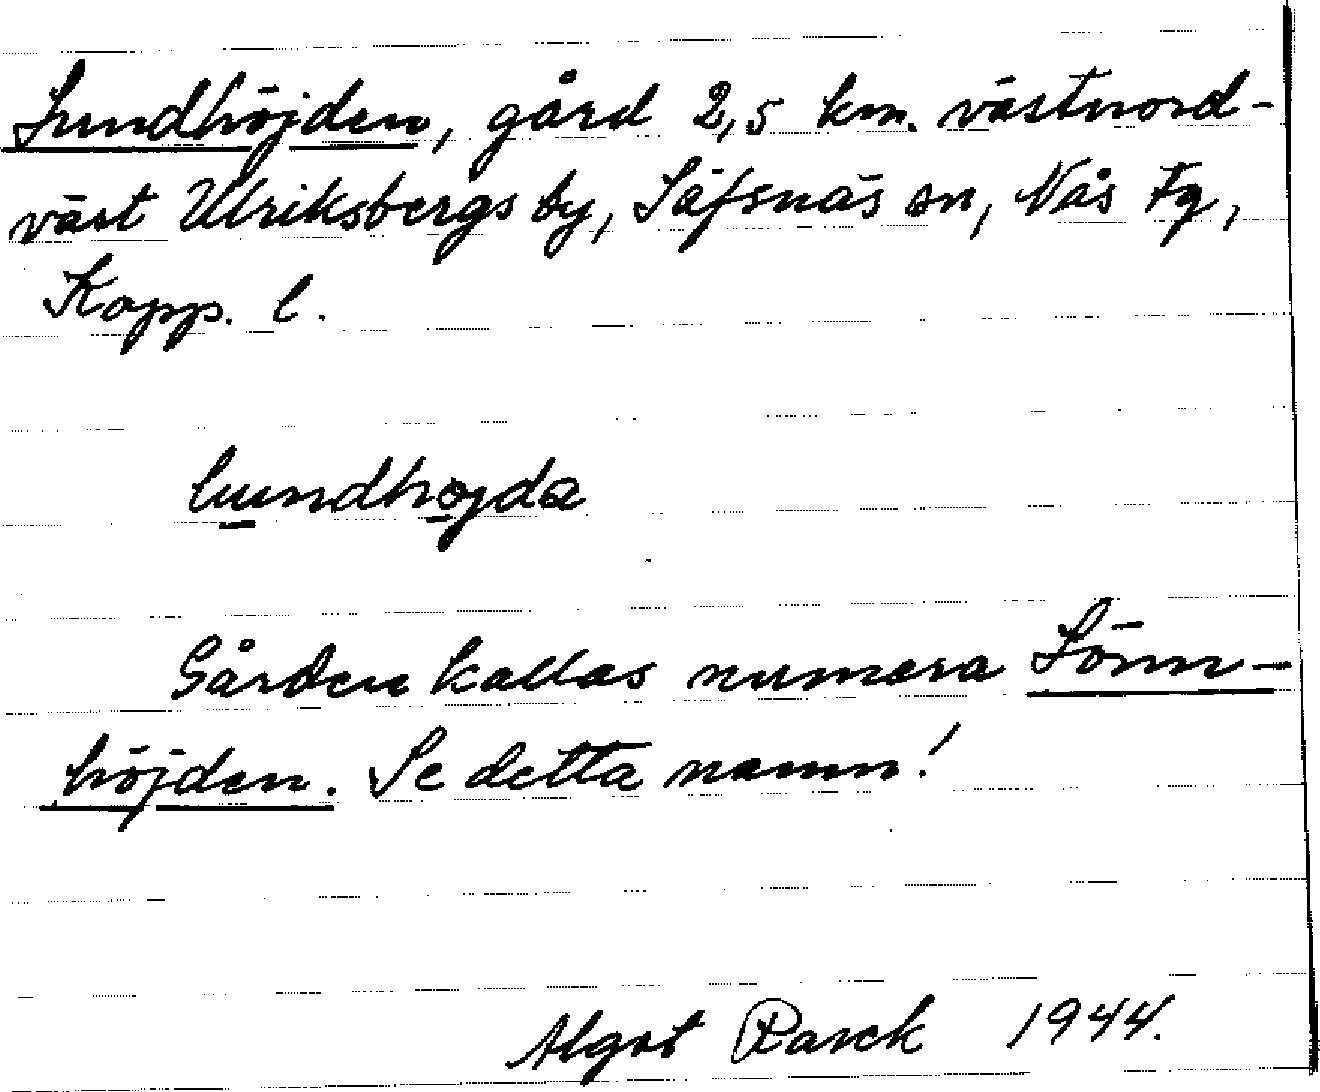 Lundhöjden, gård 2,5 km. västnord-
väst Ulriksbergs by, Säfsnäs sn, Nås Fg,
Kopp. l.
lundhojda
Gården kallas numera Lönn-
höjden. Se detta namn!
Algot 1944.